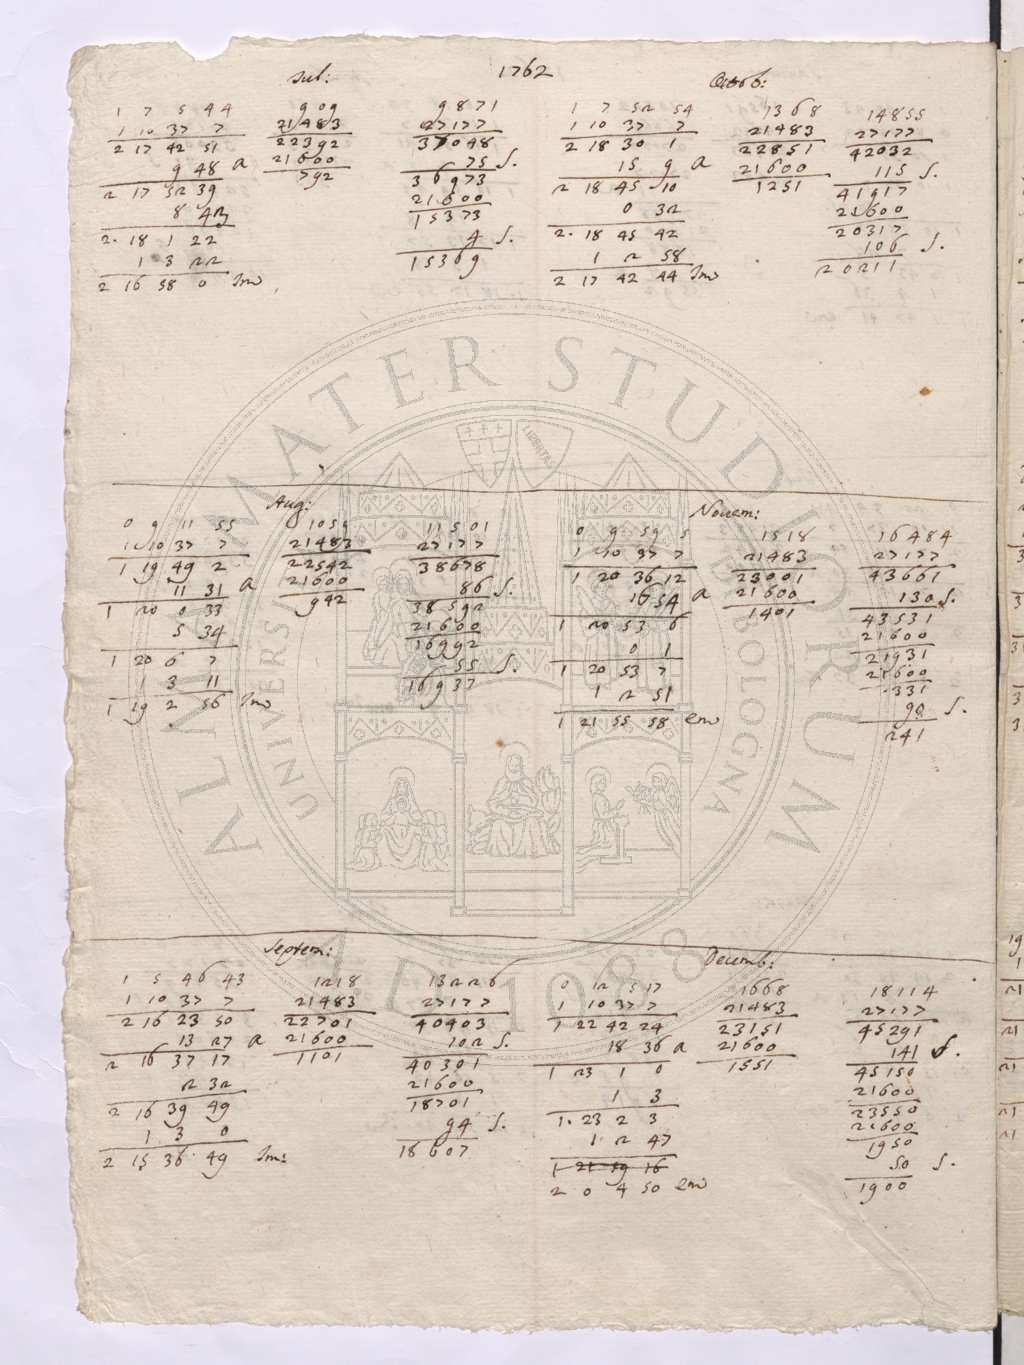 1762
Iul:
1 7 5 44
1 10 37 7
2 17 42 51
9 48 a
2 17 52 39
8 43
2. 18 1 22
1 3 22
2 16 58 0 Im
909
21483
22392
21600
792
9871
27177
37048
75 S.
36973
21600
15373
4 S.
15369
Octob:
1 7 52 54
1 10 37 7
2 18 30 1
15 9 a
2 18 45 10
0 32
2. 18 45 42
1 2 58
2 17 42 44 Im
1368
21483
22851
21600
1251
14855
27177
42032
115 S.
41917
21600
20317
106 S.
20211
Aug:
0 9 11 55
1 10 37 7
1 19 49 2
11 31 a
1 20 0 33
5 34
1 20 6 7
1 3 11
1 19 2 56 Im
1059
21483
22542
21600
942
11501
27177
38678
86 S.
38592
21600
16992
55 S.
16937
Nouem:
0 9 59 5
1 10 37 7
1 20 36 12
16 54 a
1 20 53 6
0 1
1 20 53 7
1 2 51
1 21 55 58 em
1518
21483
23001
21600
1401
16484
27177
43661
130 S.
43531
21600
21931
21600
331
90 S.
241
Septem:
1 5 46 43
1 10 37 7
2 16 23 50
13 27 a
2 16 37 17
2 32
2 16 39 49
1 3 0
2 15 36 49 Im:
1218
21483
22701
21600
1101
13226
27177
40403
102 S.
40301
21600
18701
94 S.
18607
Decemb:
0 12 5 17
1 10 37 7
1 22 42 24
18 36 a
1 23 1 0
1 3
1. 23 2 3
1 2 47
1 21 59 16
2 0 4 50 em
1668
21483
23151
21600
1551
18114
27177
45291
141 S.
45150
21600
23550
21600
1950
50 S.
1900
ALMA MATER STUDIORUM
UNIVERSITÀ DI BOLOGNA
A.D. 1088
LIBERTAS